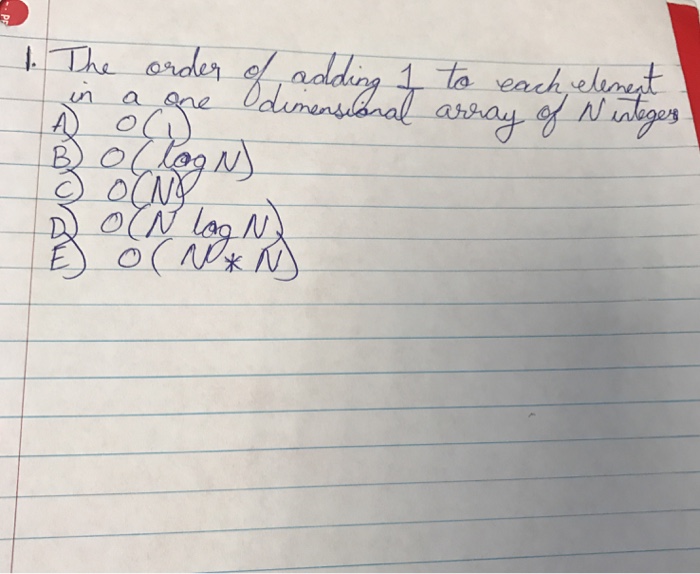 1. The order of adding 1 to each element
in a one dimensional array of N integers
A) O(1)
B) O(log N)
C) O(N)
D) O(N log N)
E) O(N * N)